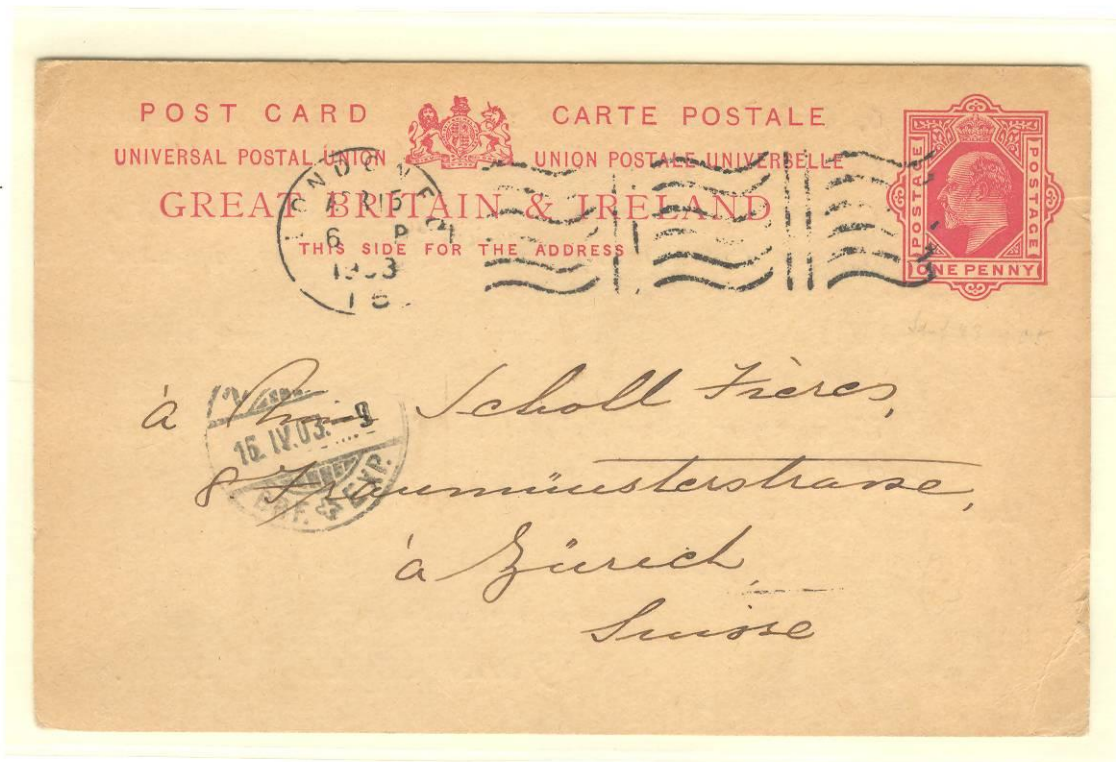 POST CARD CARTE POSTALE
UNIVERSAL POSTAL UNION UNION POSTALE UNIVERSELLE
GREAT BRITAIN & IRELAND
THIS SIDE FOR THE ADDRESS
POSTAGE POSTAGE
ONE PENNY
LONDON E.C
6 P
1903
à Scholl Frères,
15. IV. 03. - 9
8 Fraumünsterstrasse,
BRF. EXP.
à Zürich
Suisse